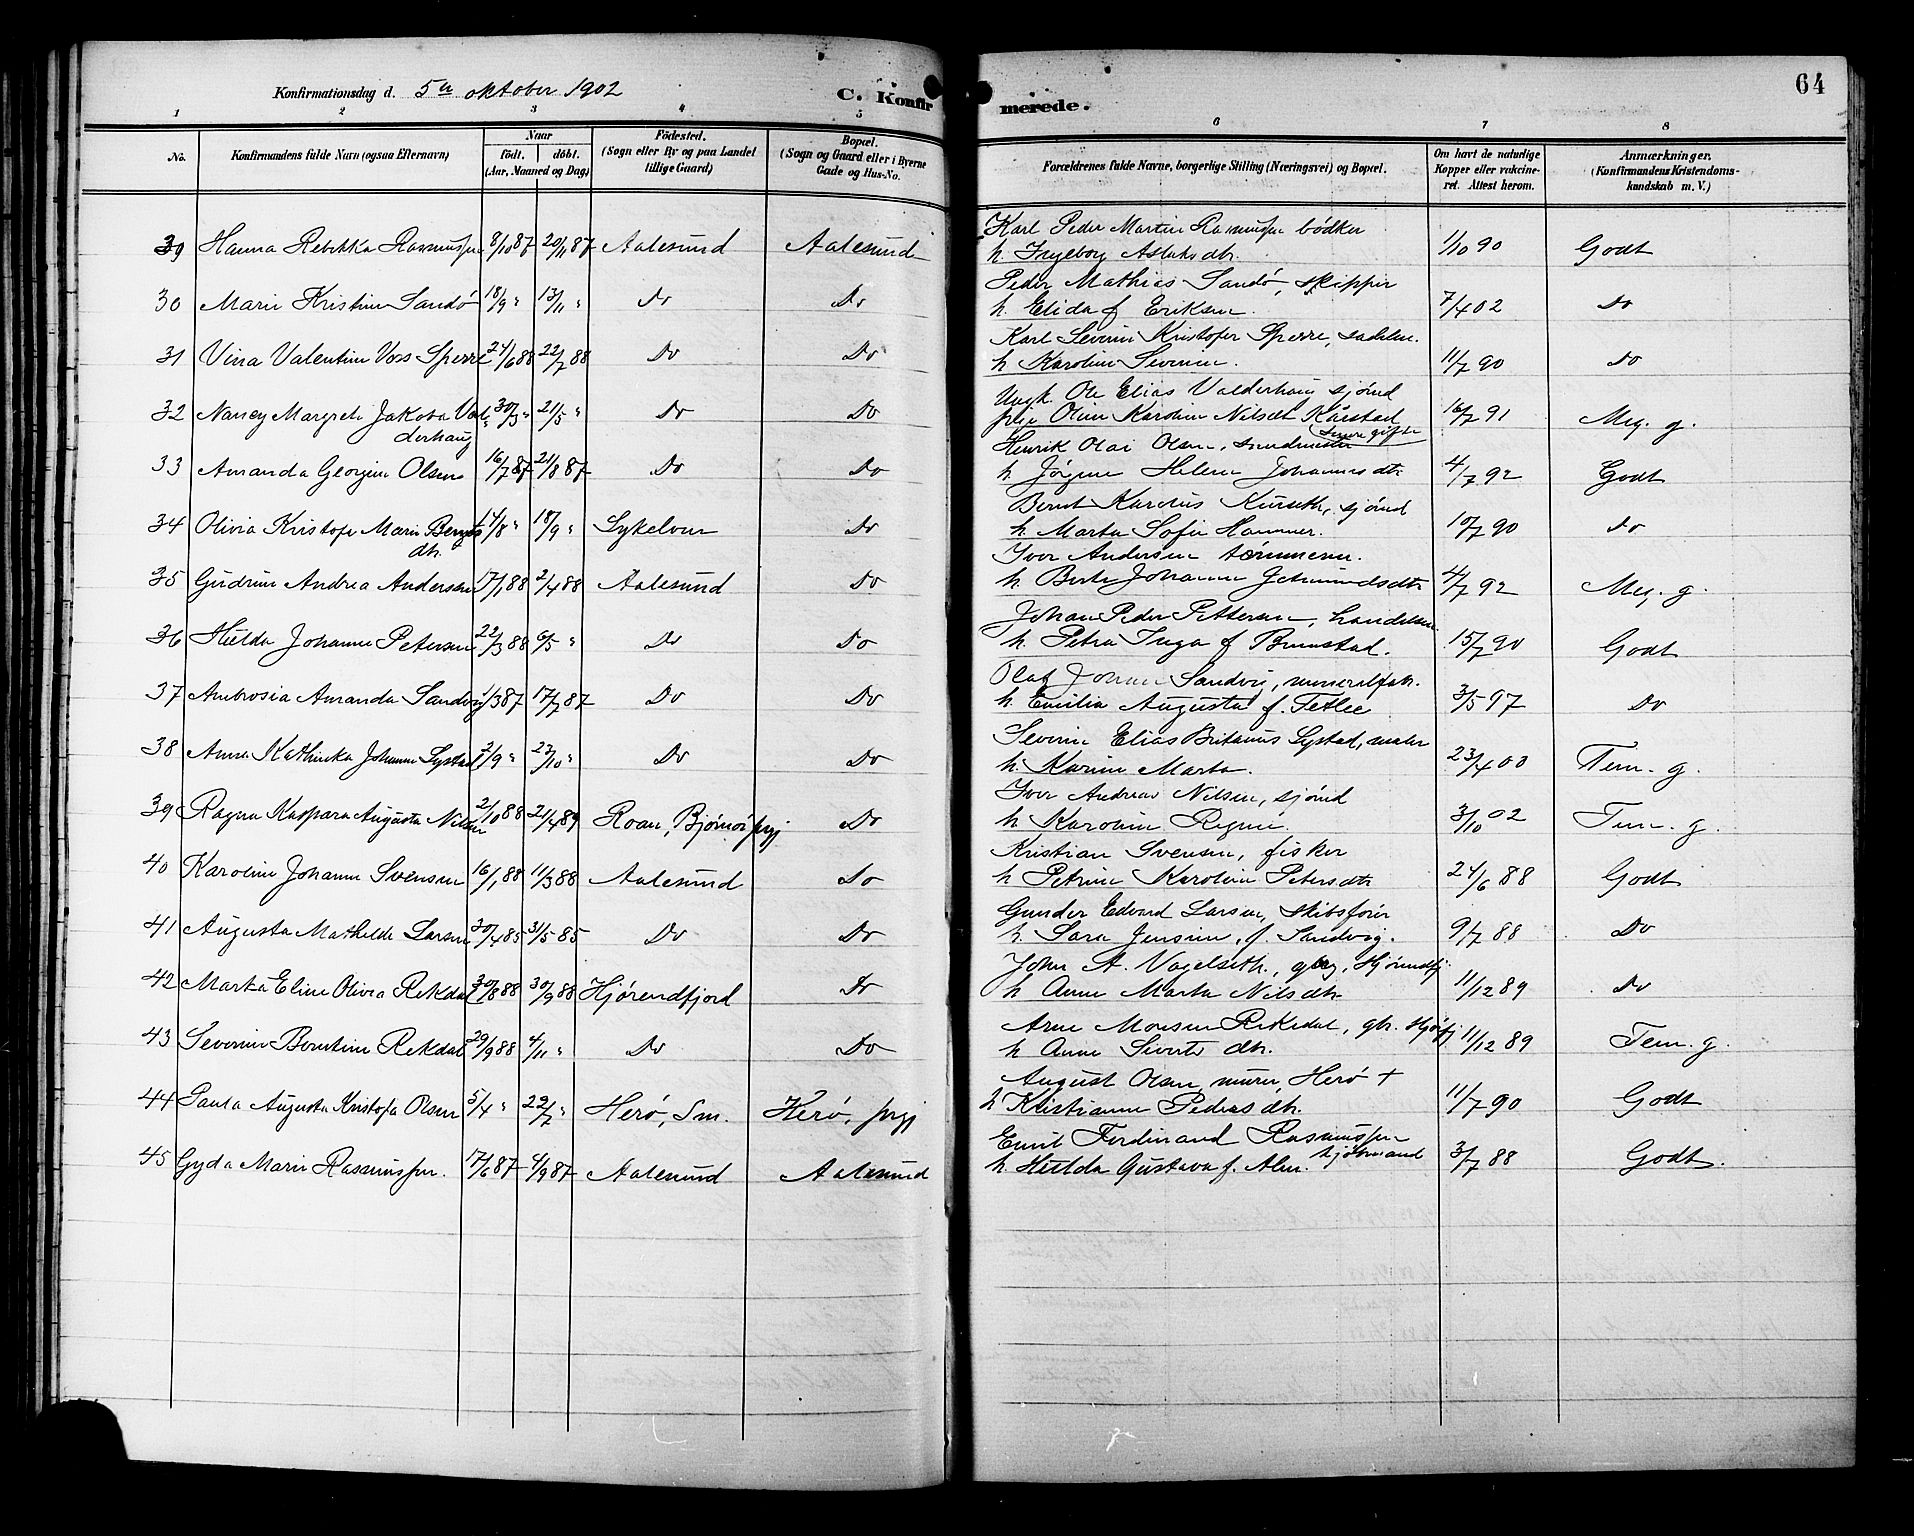 64
Konfirmationsdag d. 5te oktober 1902
C. Konfirmerede.
1 2 3 4 5 6 7 8
No. Konfirmandens fulde Navn (ogsaa Efternavn) Naar født. døbt. (Aar, Maaned og Dag) Fødested. (Sogn eller By og paa Landet tillige Gaard) Bopæl. (Sogn og Gaard eller i Byerne Gade og Hus-No. Forældrenes fulde Navne, borgerlige Stilling (Næringsvei) og Bopæl. Om havt de naturlige Kopper eller vakcineret. Attest herom. Anmærkninger. (Konfirmandens Kristendomskundskab m. V.)
Karl Peder Martin Rasmussen bødker
39 Hanna Rebekka Rasmussen 8/10 87 20/11 87 Aalesund Aalesund h. Ingeborg Aslaksdtr. 1/10 90 Godt
Peder Mathias Sandø, skipper
30 Marie Kristine Sandø 18/9 " 13/11 " Do Do h. Elida f Eriksen. 7/4 02 Do
Karl Severin Kristofer Sperre,
31 Vina Valentine Voss Sperre 24/6 88 22/7 88 Do Do h Karoline Severine. 11/7 90 Do
Ungk. Ole Elias Valderhaug sjømd
32 Nancy Margrete Jakoba Valderhaug 30/3 " 21/5 " Do Do pige Oline Karoline Nilsdtr Kårstad 16/7 91 Meg. g.
Henrik Olai Olsen,
33 Amanda Georgine Olsen 16/7 87 21/8 87 Do Do h Jørgine Helene Johannesdtr 4/7 92 Godt
Bernt Karolus sjømd
34 Olivia Kristofe Marie Berntsdtr. 14/8 " 18/9 " Sykelven Do h. Marta Sofie Hammer. 10/7 90 Do
Iver Andersen tømmerm.
35 Gudrun Andrea Andersen 17/1 88 2/4 88 Aalesund Do h. Berte Johanne 4/7 92 Meg. g.
Johan Peder Pettersen, handelsm.
36 Hulda Johanne Petersen 22/3 88 6/5 " Do Do h. Petra Inga f Brunstad. 15/7 90 Godt
Olaf Johan Sandvig, mineralfab.
37 Ambrosia Amanda Sandvig 1/3 87 17/7 87 Do Do h. Emilia Augusta f. Tetlee 3/5 97 Do
Severin Elias Britanus Systad, maler
38 Anna Kathinka Johanne Systad 2/9 " 23/10 " Do Do h. Karine Marta. 23/4 00 Tem. g.
Iver Andreas Nilsen, sjømd
39 Ragna Kaspara Augusta Nilsen 2/10 88 21/4 89 Roan, Bjørnør prgj Do h Karoline 3/10 02 Tem. g.
Kristian Svensen, fisker
40 Karoline Johanne Svensen 16/1 88 11/3 88 Aalesund Do h Petrine Karoline Petersdtr 24/6 88 Godt
Gunder Edvard Larsen, skibsfører
41 Augusta Mathilde Larsen 30/4 85 31/5 85 Do Do h. Sara Jensine, f. Sandvig. 9/7 88 Do
John A. Vogelseth,
42 Marta Eline Olivia Rekdal 30/8 88 30/9 88 Hjørendfjord Do h Anne Marta Nilsdtr 11/12 89 Do
Arne Monsen Rekedal, gbr. Hjørfj
43 Severine Berntine Rekdal 29/9 88 4/11 " Do Do h Anne Siverts dtr. 11/12 89 Tem. g.
August Olsen, murer, Herø +
44 Paula Augusta Kristofa Olsen 5/4 " 22/7 " Herø, Sm. Herø, prgj h Kristianne Pedersdtr. 11/7 90 Godt
Emil Ferdinand Rasmussen sjømand
45 Gyda Marie Rasmussen. 17/6 87 4/9 87 Aalesund Aalesund h Hulda Gustava f. Alm. 3/7 88 Godt.